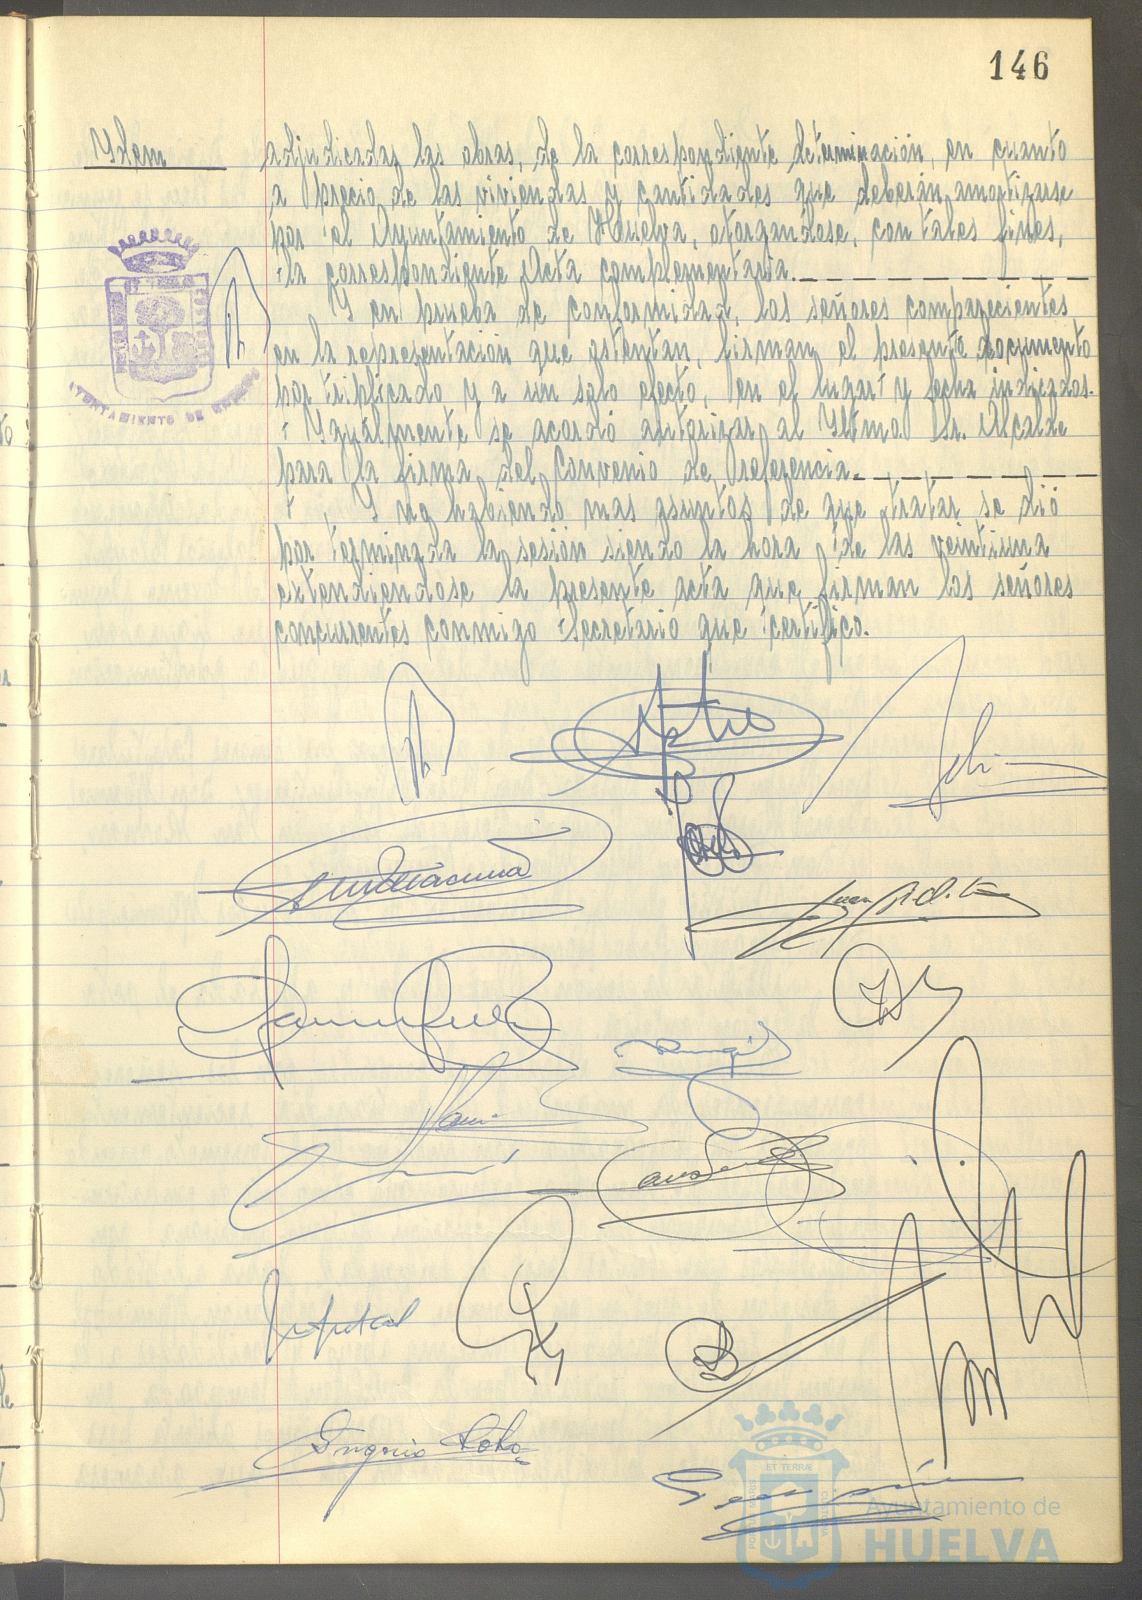 146
Ydem
adjudicadas las obras, de la correspondiente determinación, en cuanto
a precio de las viviendas y cantidades que deberán amortizarse
por el Ayuntamiento de Huelva, otorgandose, con tales fines,
la correspondiente Acta complementaria.
Y en prueba de conformidad, los señores comparecientes
en la representación que ostentan, firman el presente documento
por triplicado y a un solo efecto, en el lugar y fecha indicados.
Ygualmente se acordó autorizar al Yltmo. Sr. Alcalde
para la firma del Convenio de referencia.
Y no habiendo mas asuntos de que tratar se dió
por terminada la sesión siendo la hora de las veintiuna
extendiendose la presente acta que firman los señores
concurrentes conmigo Secretario que certifico.
AYUNTAMIENTO DE HUELVA
ET TERRÆ
Ayuntamiento de
HUELVA